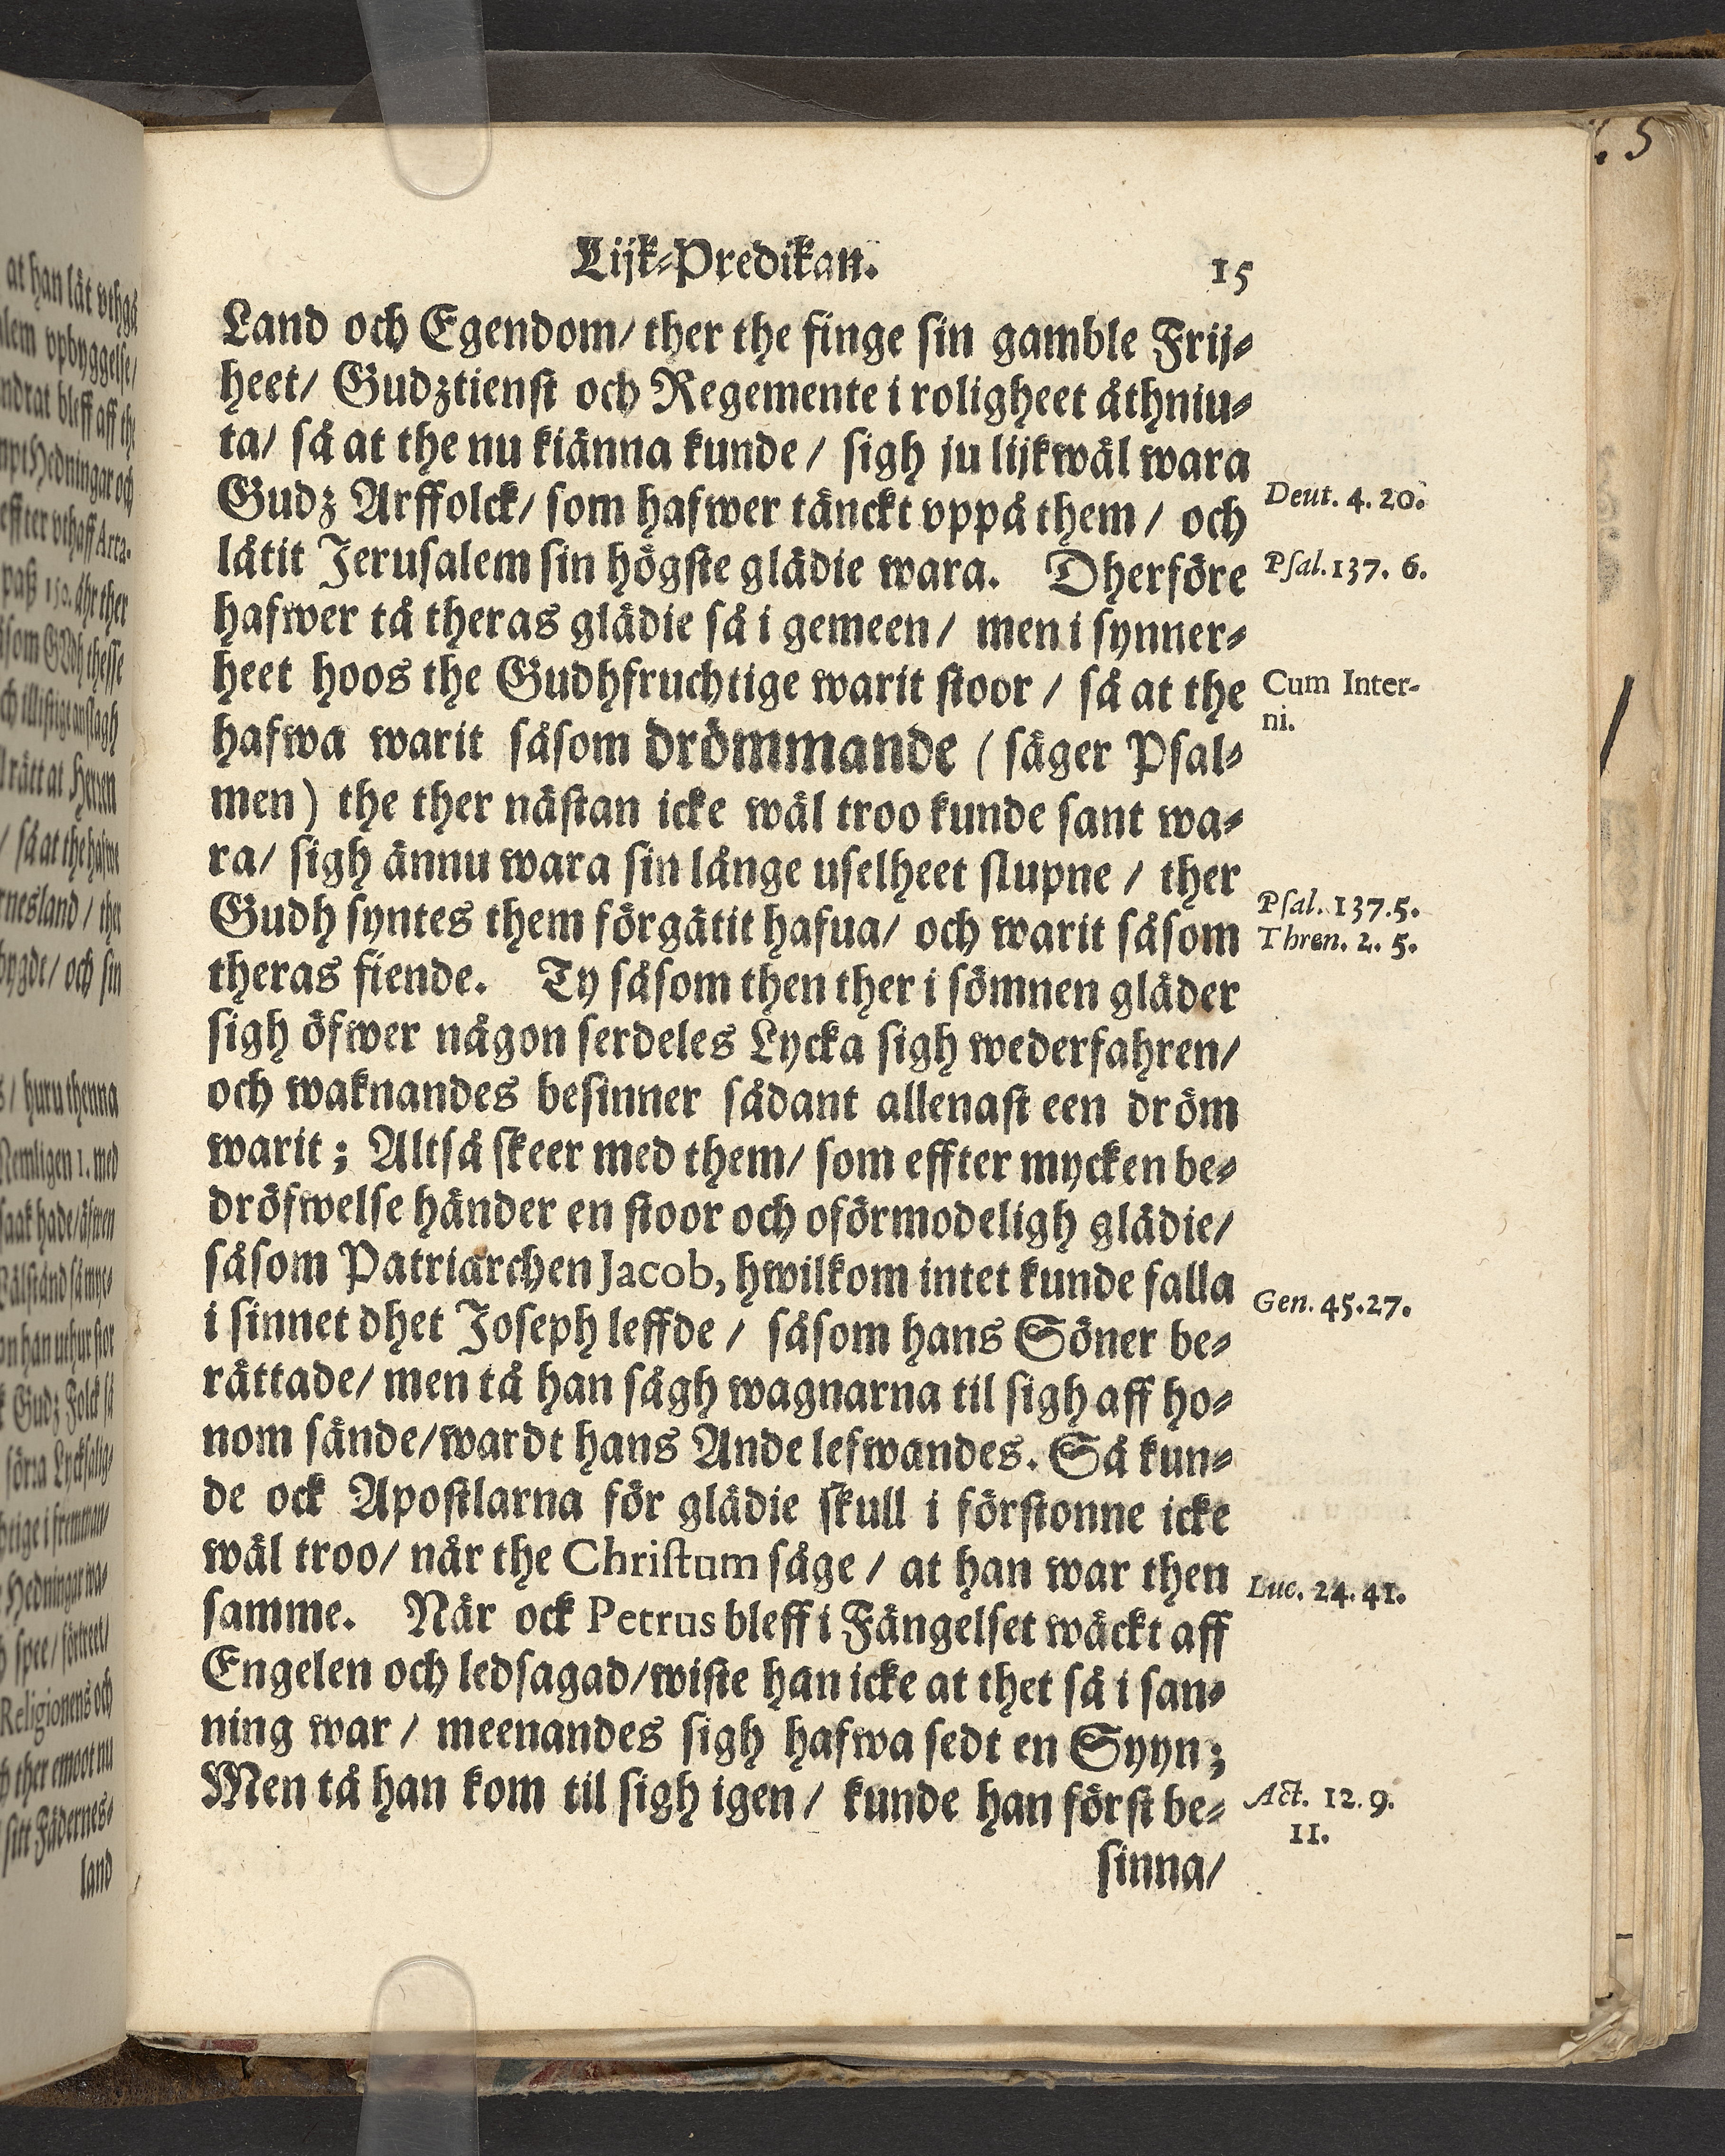 Lijk-Predikan. 15
Land och Egendom/ ther the finge sin gamble Frij-
heet/ Gudztienst och Regemente i roligheet åthniu-
ta/ så at the nu kiänna kunde / sigh ju lijkwäl wara
Gudz Arffolck/ som hafwer tänckt vppå them / och
Deut. 4. 20.
låtit Jerusalem sin högste glädie wara. Dherföre
Psal. 137. 6.
hafwer tå theras glädie så i gemeen / men i synner-
heet hoos the Gudhfruchtige warit stoor / så at the
Cum Inter-
ni.
hafwa warit såsom drömmande ( säger Psal-
men ) the ther nästan icke wäl troo kunde sant wa-
ra/ sigh ännu wara sin långe uselheet slupne / ther
Gudh syntes them förgätit hafua/ och warit såsom
Psal. 137. 5.
Thren. 2. 5.
theras fiende. Ty såsom then ther i sömnen gläder
sigh öfwer någon serdeles Lycka sigh wederfahren/
och waknandes besinner sådant allenast een dröm
warit ; Altså skeer med them/ som effter mycken be-
dröfwelse händer en stoor och oförmodeligh glädie/
såsom Patriarchen Jacob, hwilkom intet kunde falla
Gen. 45. 27.
i sinnet dhet Joseph leffde / såsom hans Söner be-
rättade/ men tå han sågh wagnarna til sigh aff ho-
nom sände/wardt hans Ande lefwandes. Så kun-
de ock Apostlarna för glädie skull i förstonne icke
wäl troo/ når the Christum såge / at han war then
Luc. 24. 41.
samme. När ock Petrus bleff i Fängelset wäckt aff
Engelen och ledsagad/wiste han icke at thet så i san-
ning war / meenandes sigh hafwa sedt en Syyn ;
Men tå han kom til sigh igen / kunde han först be-
Act. 12. 9.
11.
sinna/